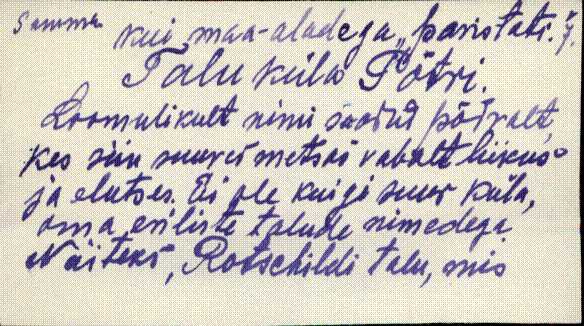 Samma
kui maa-aladega „paristati."
Talu küla Põtri.
Loomulikult nimi saadud põdralt,
kes siin suures metsas vabalt liikus
ja elutses. Ei ole kuigi suur küla,
oma eriliste talude nimedega
Näiteks, Rotschildi talu, mis